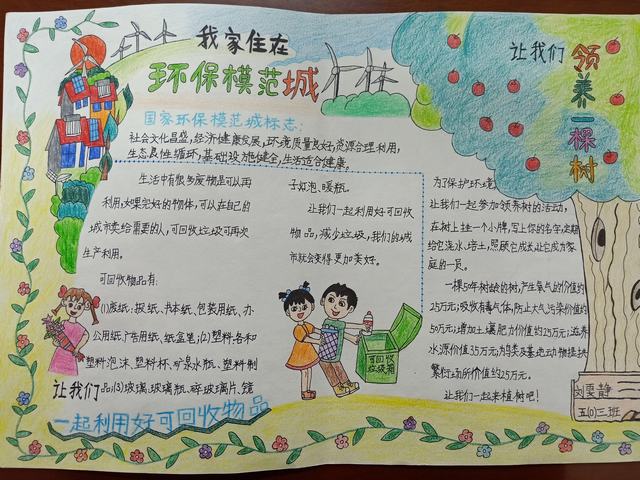 我家住在
环保模范城
国家环保模范城标志:
社会文化昌盛,经济健康发展,环境质量良好,资源合理利用,
生态良性循环,基础设施健全,生活适合健康。
生活中有很多废物是可以再
利用,如果完好的物体,可以在自己的
城市卖给需要的人,可回收垃圾可再次
生产利用。
可回收物品有:
(1)废纸:报纸、书本纸、包装用纸、办
公用纸、广告用纸、纸盒等;(2)塑料:各种
塑料泡沫、塑料杯、矿泉水瓶、塑料制
品;(3)玻璃:玻璃瓶、碎玻璃片、镜
子、灯泡、暖瓶。
让我们一起利用好可回收
物品,减少垃圾,我们的城
市就会变得更加美好。
让我们
一起利用好可回收物品
可回收
垃圾箱
让我们
领养一棵树
为了保护环境
让我们一起参加领养树的活动,
在树上挂一个小牌,写上你的名字,定期
给它浇水、培土,照顾它成长,让它成为家
庭的一员。
一棵50年树龄的树,产生氧气的价值约
25万元;吸收有毒气体,防止大气污染价值约
50万元;增加土壤肥力价值约25万元;滋养
水源价值35万元;为鸟类及其他动物提供
繁衍场所价值约25万元。
让我们一起来植树吧!
刘雯静
五(0)三班